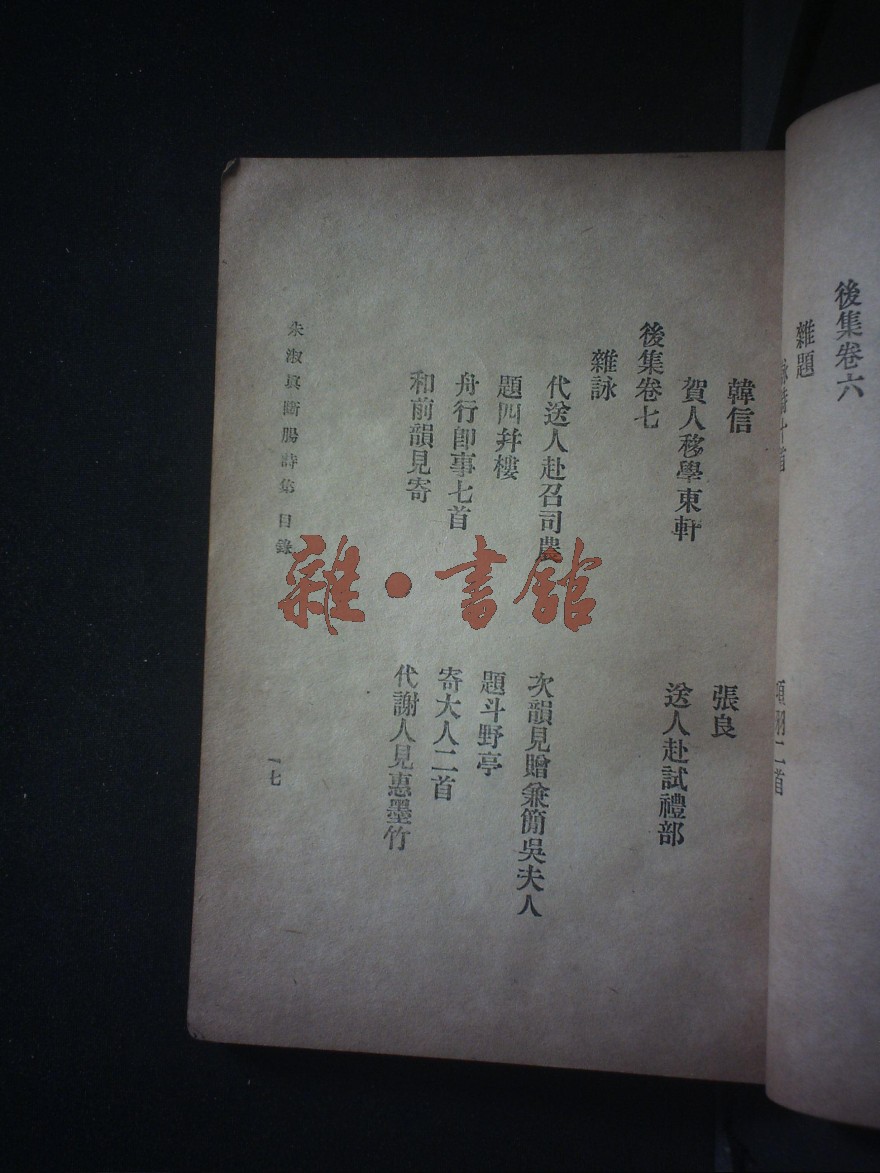 後集卷六
雜題
詠詩十首
項羽二首
韓信
張良
賀人移學東軒
送人赴試禮部
後集卷七
雜詠
代送人赴召司農
次韻見贈兼簡吳夫人
題四幷樓
題斗野亭
舟行卽事七首
寄大人二首
和前韻見寄
代謝人見惠墨竹
朱淑眞斷腸詩第 目錄
一七
雜·書館